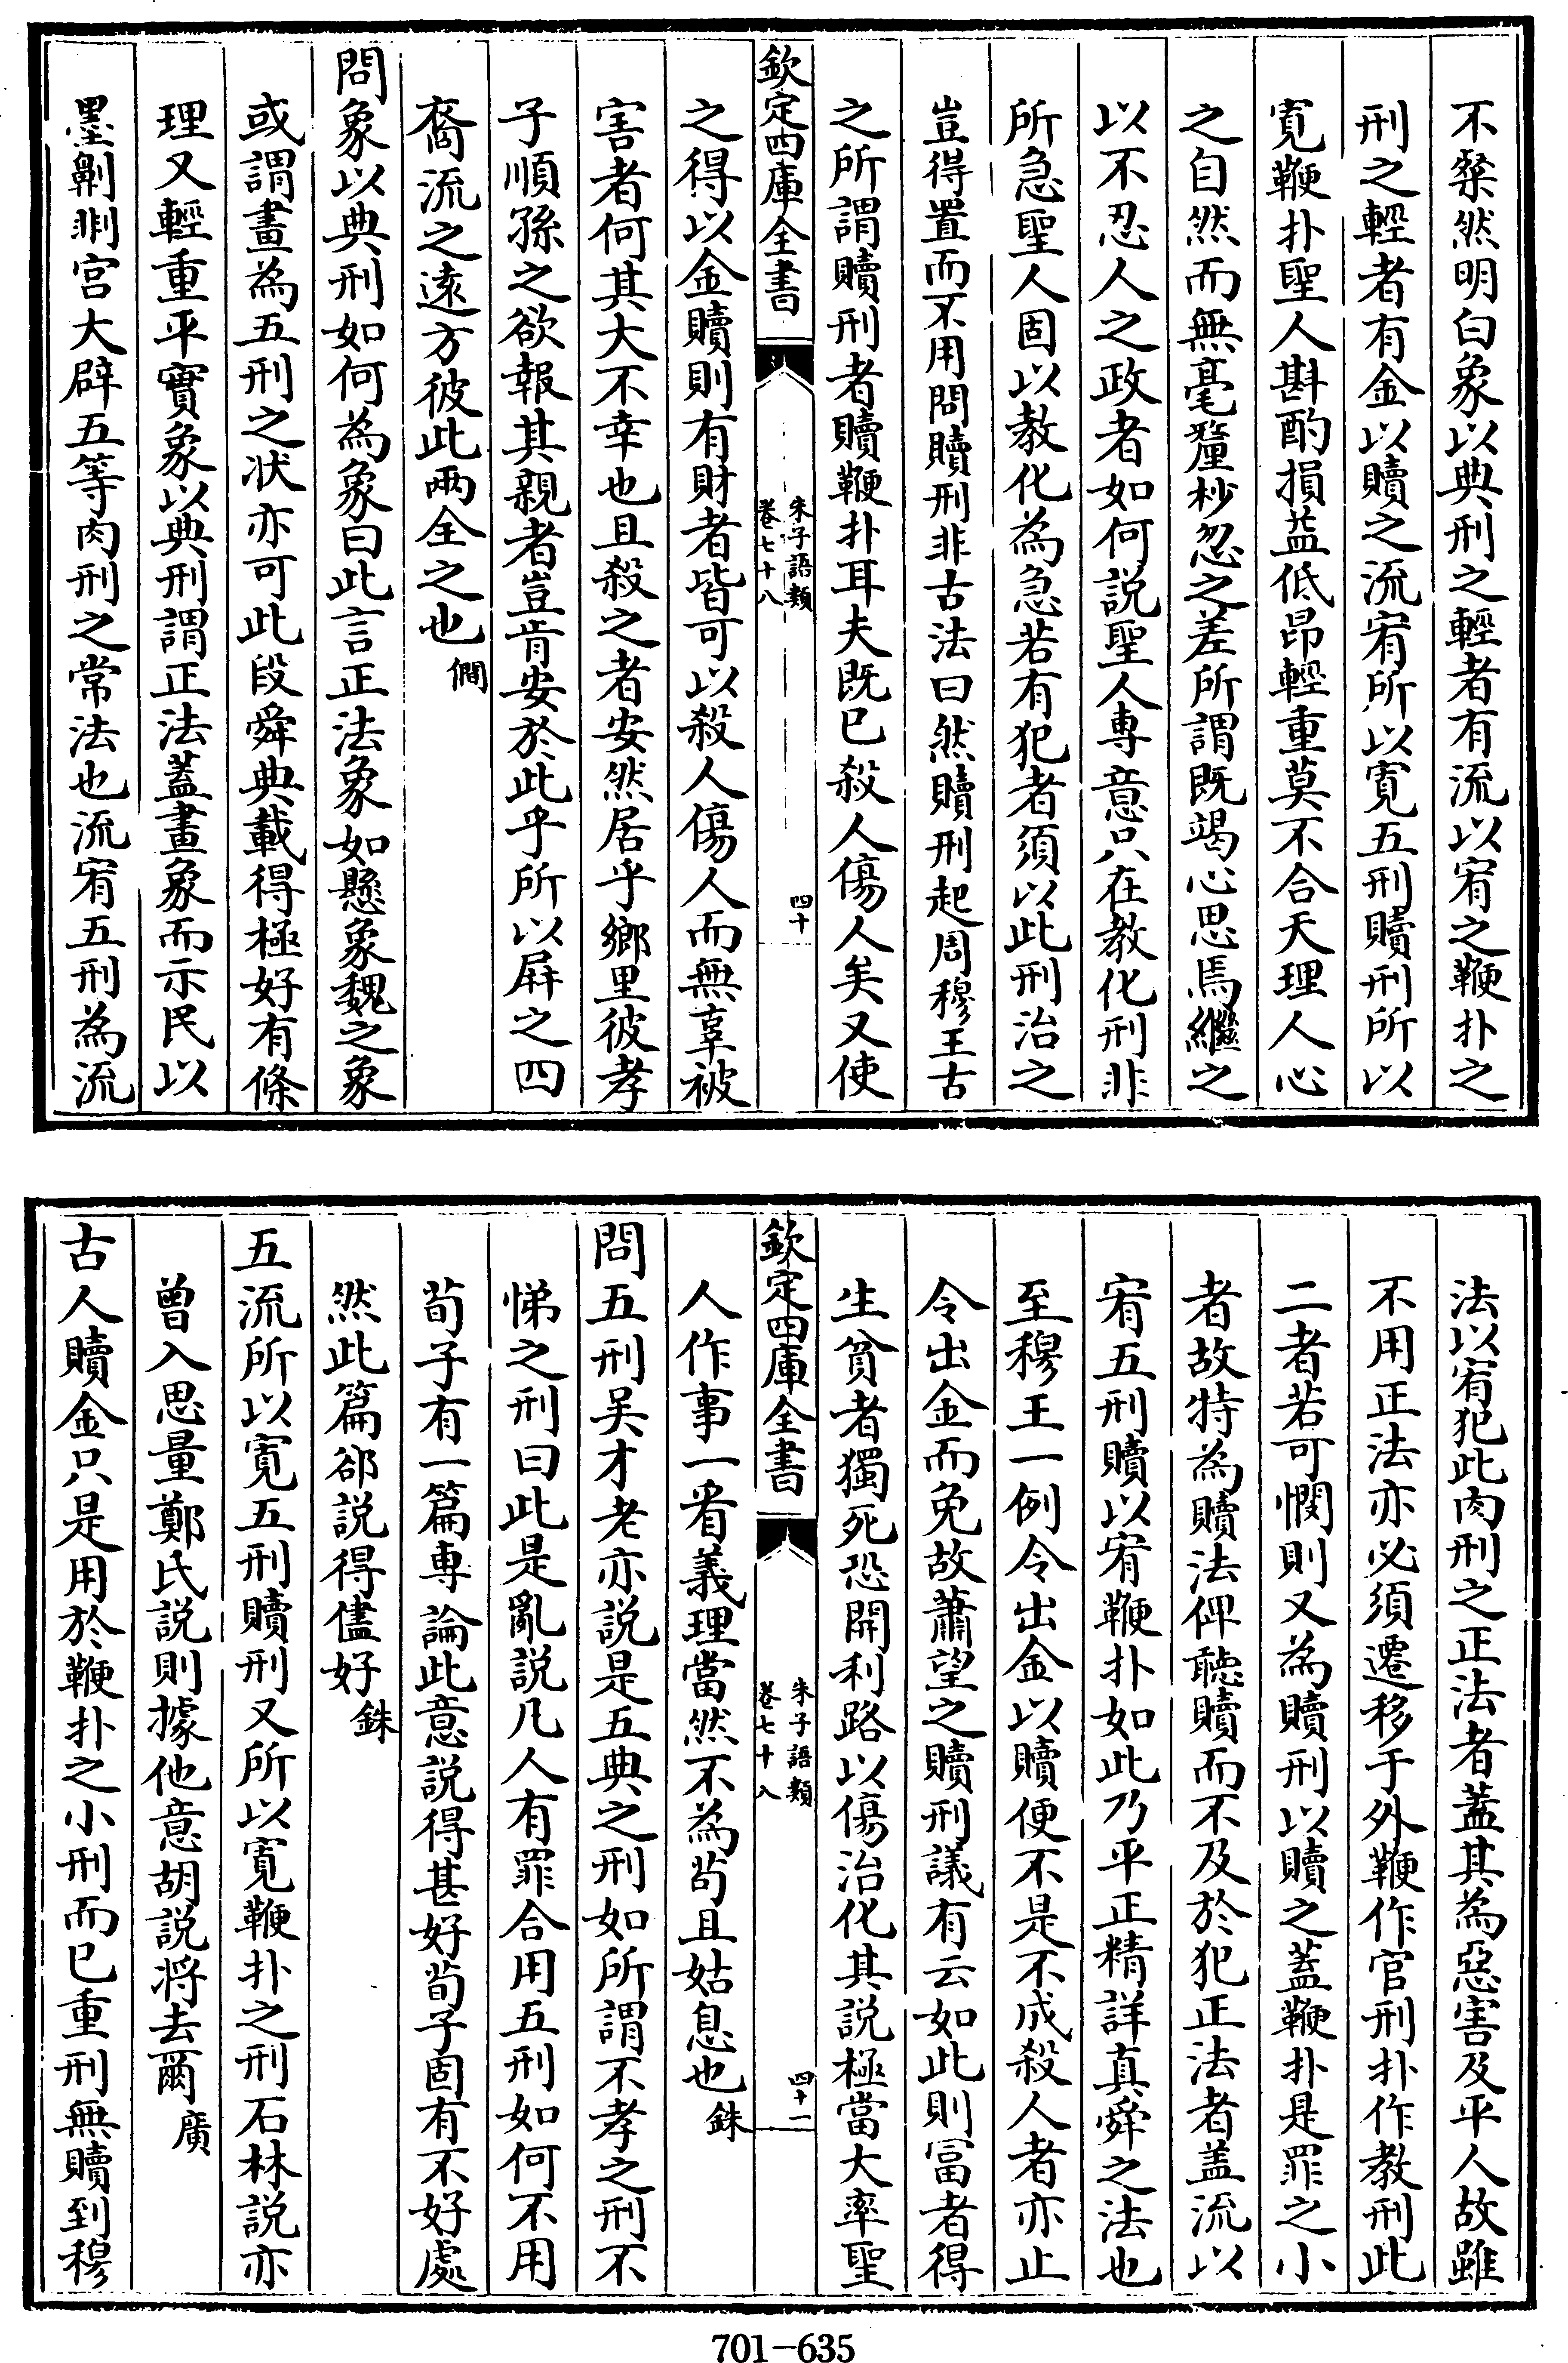 不粲然明白象以典刑之輕者有流以宥之鞭扑之
刑之輕者有金以贖之流宥所以寛五刑贖刑所以
寛鞭扑聖人斟酌損益低昂輕重莫不合天理人心
之自然而無毫釐杪忽之差所謂既竭心思焉繼之
以不忍人之政者如何説聖人専意只在教化刑非
所急聖人固以教化為急若有犯者須以此刑治之
豈得置而不用問贖刑非古法曰然贖刑起周穆王古
之所謂贖刑者贖鞭扑耳夫既已殺人傷人矣又使
欽定四庫全書
朱子語類
卷七十八
四十
之得以金贖則有財者皆可以殺人傷人而無辜被
害者何其大不幸也且殺之者安然居乎鄉里彼孝
子順孫之欲報其親者豈肯安於此乎所以屏之四
裔流之逺方彼此兩全之也僩
問象以典刑如何為象曰此言正法象如懸象魏之象
或謂畫為五刑之狀亦可此段舜典載得極好有條
理又輕重平實象以典刑謂正法蓋畫象而示民以
墨劓剕宫大辟五等肉刑之常法也流宥五刑為流
法以宥犯此肉刑之正法者蓋其為惡害及平人故雖
不用正法亦必須遷移于外鞭作官刑扑作教刑此
二者若可憫則又為贖刑以贖之蓋鞭扑是罪之小
者故特為贖法俾聽贖而不及於犯正法者盖流以
宥五刑贖以宥鞭扑如此乃平正精詳真舜之法也
至穆王一例令出金以贖便不是不成殺人者亦止
令出金而免故蕭望之贖刑議有云如此則冨者得
生貧者獨死恐開利路以傷治化其説極當大率聖
欽定四庫全書
朱子語類
卷七十八
四十一
人作事一看義理當然不為茍且姑息也銖
問五刑吳才老亦説是五典之刑如所謂不孝之刑不
悌之刑曰此是亂説凡人有罪合用五刑如何不用
荀子有一篇専論此意説得甚好荀子固有不好處
然此篇郤説得儘好銖
五流所以寛五刑贖刑又所以寛鞭扑之刑石林説亦
曽入思量鄭氏説則據他意胡説将去爾廣
古人贖金只是用於鞭扑之小刑而已重刑無贖到穆
701-635